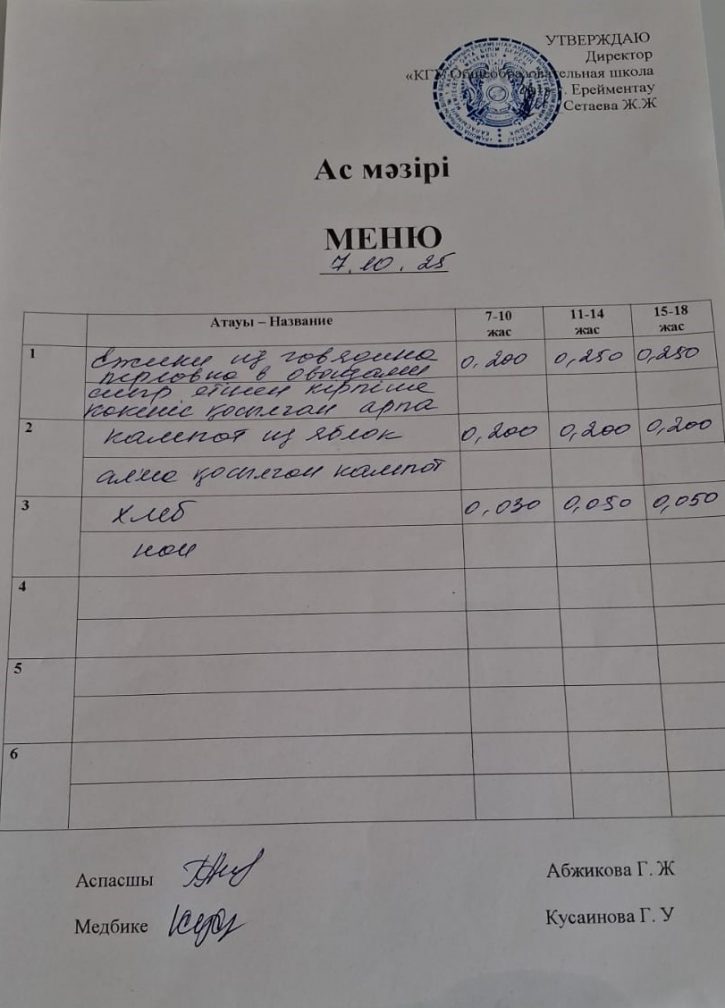 УТВЕРЖДАЮ
Директор
«КГУ Общеобразовательная школа
Ерейментау
Сетаева Ж.Ж
Ас мәзірі
МЕНЮ
7.10.25
Атауы – Название 7-10 жас 11-14 жас 15-18 жас
1 из говядина 0,200 0,250 0,250
перловно в овощами
сиыр етінен кірпіше
көкөніс қосылған арпа
2 кампот из яблок 0,200 0,200 0,200
алма қосылған кампот
3 хлеб 0,030 0,050 0,050
нан
4
5
6
Аспасшы Абжикова Г. Ж
Медбике Кусаинова Г. У